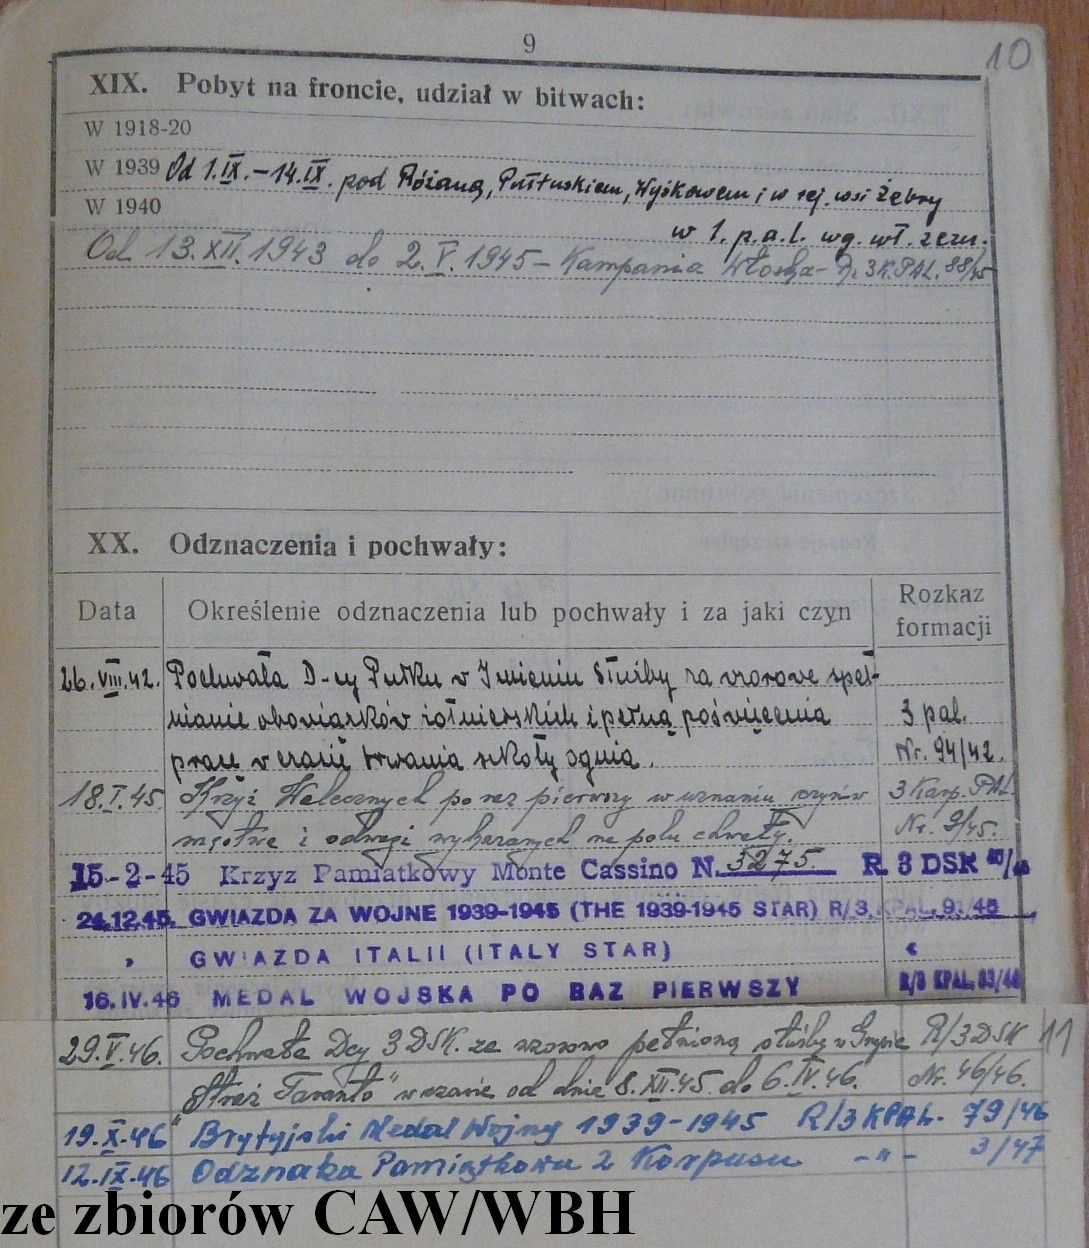 9
10
XIX. Pobyt na froncie, udział w bitwach:
W 1918-20
W 1939 Od 1.IX.–14.IX. pod Różaną, Pułtuskiem, Wyśkowem i w rej. wsi Żebry
W 1940
w 1. p.a.l. wg. wł. zezn.
Od 13.XII.1943 do 2.V.1945 – Kampania Włoska – 3 K.PAL. 88/45
XX. Odznaczenia i pochwały:
Data
Określenie odznaczenia lub pochwały i za jaki czyn
Rozkaz
formacji
26.VIII.42. Pochwała D-cy Pułku w Imieniu Służby za wzorowe speł-
nianie obowiązków żołnierskich i pełną poświęcenia 3 pal.
pracę w czasie trwania szkoły ognia. Nr. 94/42.
18.I.45 Krzyż Walecznych po raz pierwszy w uznaniu czynów 3 Karp. PAL.
męstwa i odwagi wykazanych na polu chwały. Nr. 9/45.
15-2-45 Krzyz Pamiatkowy Monte Cassino N. 5275. R. 3 DSK
24.12.45. GWIAZDA ZA WOJNE 1939-1945 (THE 1939-1945 STAR) R/3. KPAL. 91/45
" GWIAZDA ITALII (ITALY STAR) "
16.IV.46 MEDAL WOJSKA PO RAZ PIERWSZY R/3 KPAL. 33/46
29.V.46. Pochwała Dcy 3 DSK. za wzorowo pełnioną służbę w Grupie R/3 DSK 11
"Straż Taranto" w czasie od dnia 8.XII.45 do 6.IV.46. Nr. 46/46.
19.X.46 Brytyjski Medal Wojny 1939-1945 R/3 KPAL. 79/46
12.IX.46 Odznaka Pamiątkowa 2 Korpusu -"- 3/47
ze zbiorów CAW/WBH